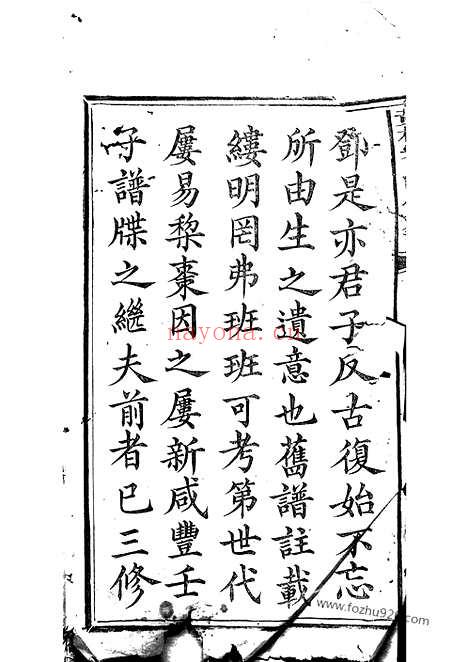 鄧是亦君子反古復始不忘
所由生之遺意也舊譜註載
縷明罔弗班班可考第世代
屢易棃棗因之屢新咸豐壬
子譜牒之繼夫前者已三修
nayona.cn
www.fozhu920.com